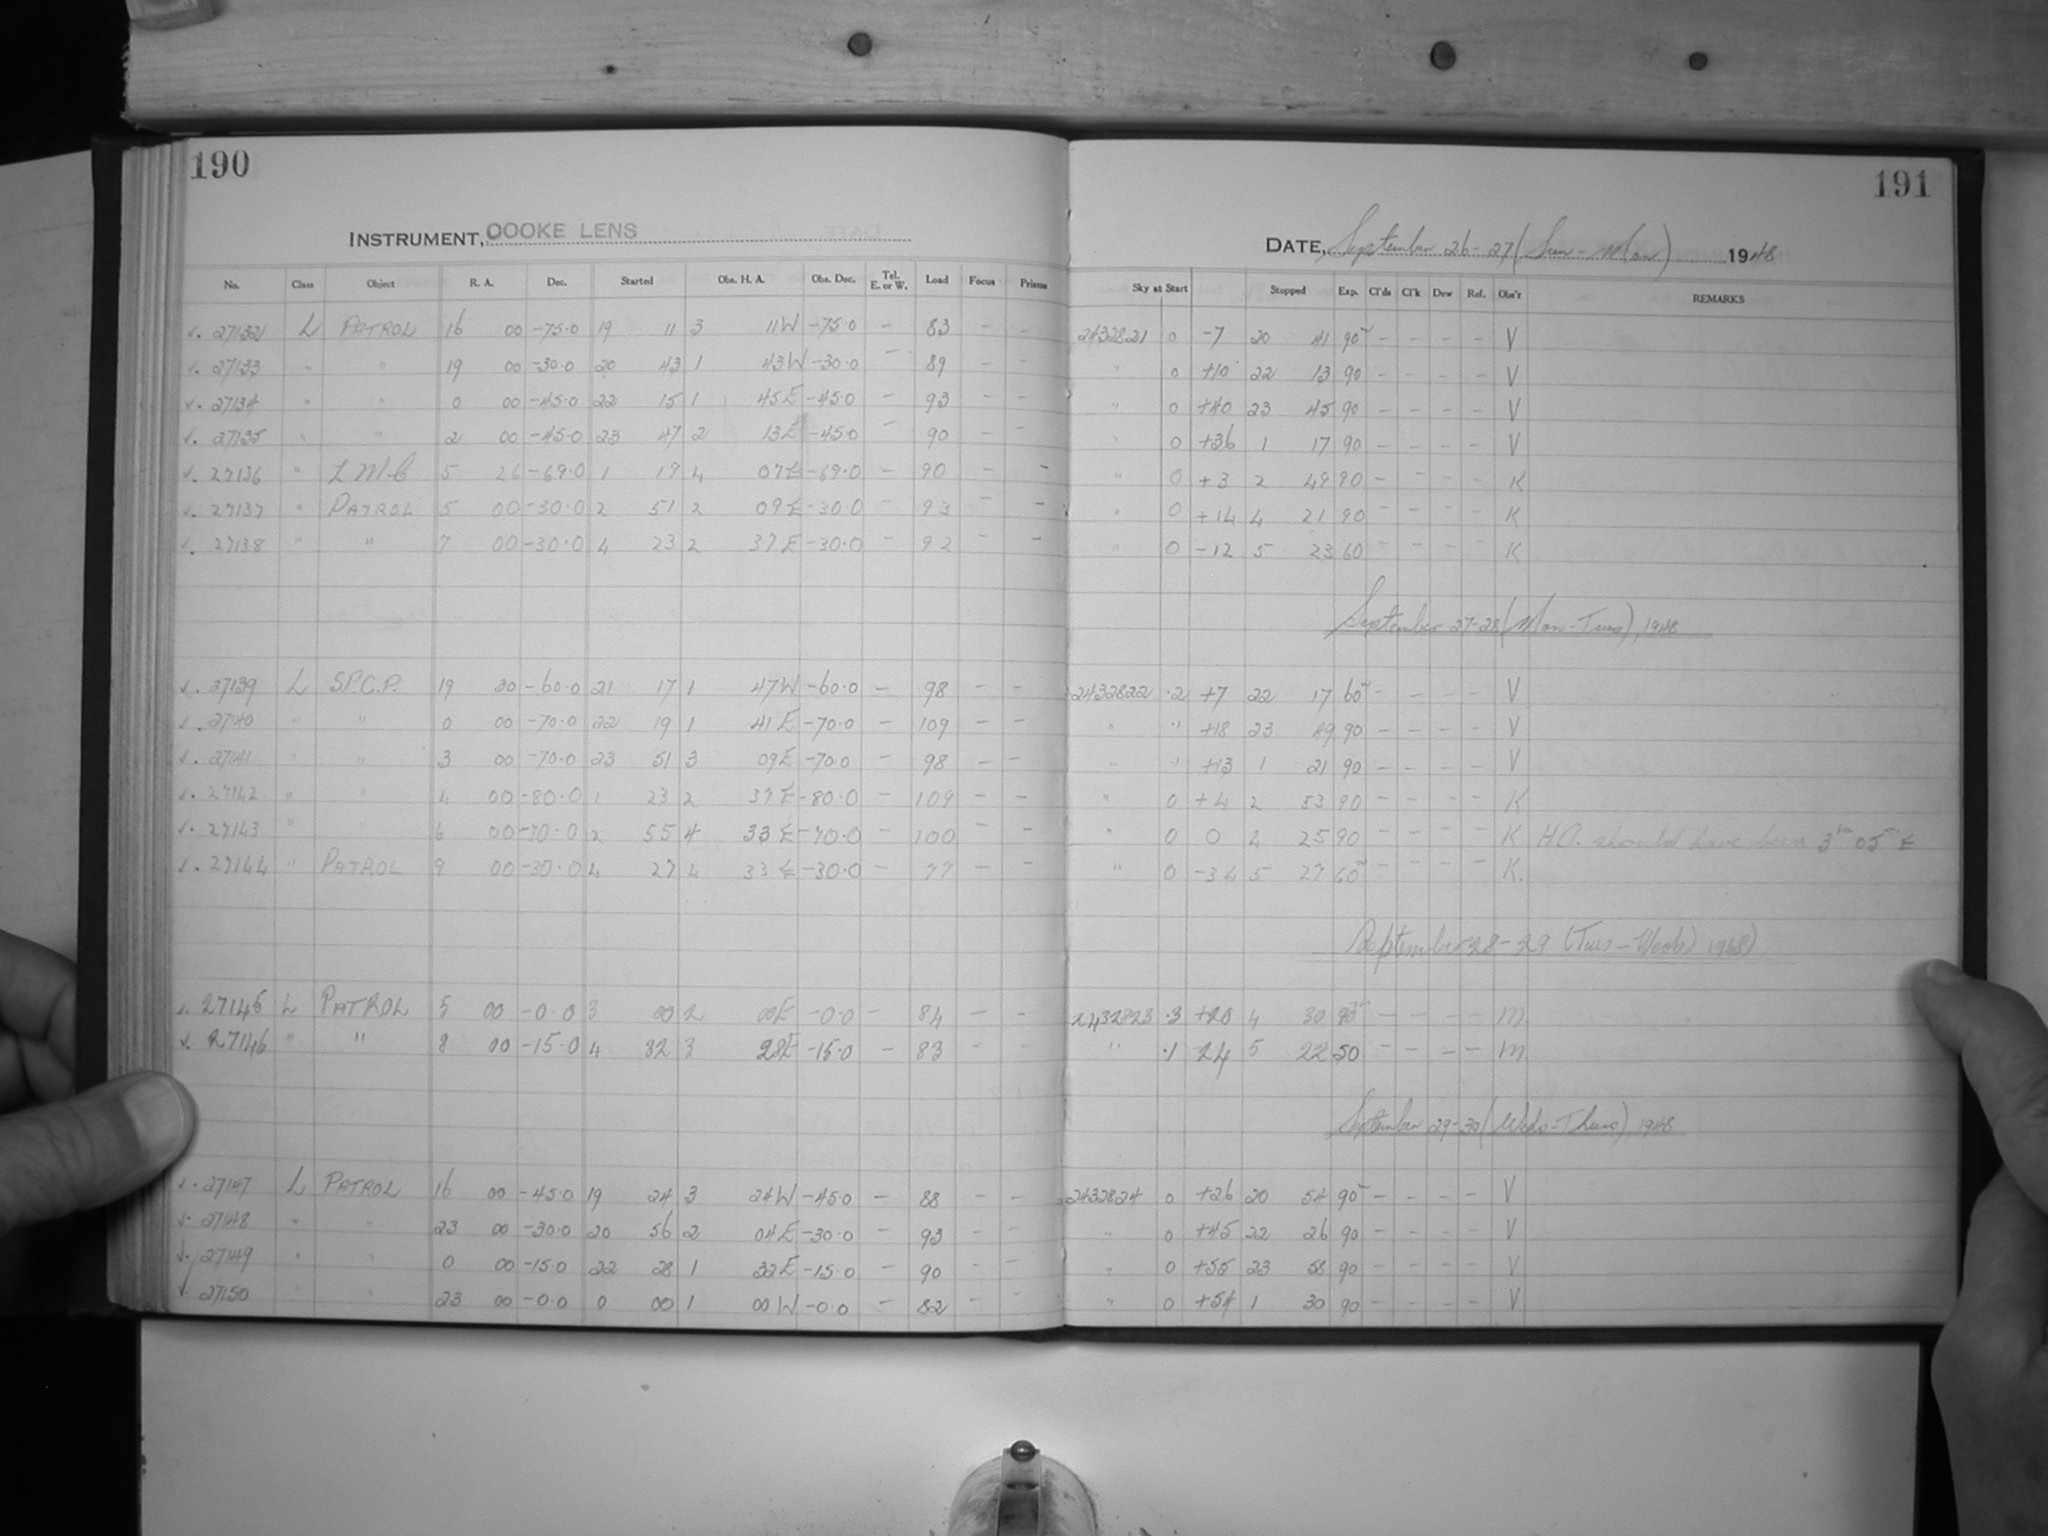 190
INSTRUMENT, COOKE LENS
No. Class Object R. A. Dec. Started Obs. H. A. Obs. Dec. Tel. E. or W. Load Focus Prisms
√. 27132 L PATROL 16 00 -75.0 19 11 3 11W -75.0 - 83 - -
√. 27133 " " 19 00 -30.0 20 43 1 43W -30.0 - 89 - -
√. 27134 " " 0 00 -45.0 22 15 1 45E -45.0 - 93 - -
√. 27135 " " 2 00 -45.0 23 47 2 13E -45.0 - 90 - -
√. 27136 " L M.C 5 26 -69.0 1 19 4 07E -69.0 - 90 - -
√. 27137 " PATROL 5 00 -30.0 2 51 2 09E -30.0 - 93 - -
√. 27138 " " 7 00 -30.0 4 23 2 37E -30.0 - 92 - -
√. 27139 L S.P.C.P. 19 30 -60.0 21 17 1 47W -60.0 - 98 - -
√. 27140 " " 0 00 -70.0 22 19 1 41E -70.0 - 109 - -
√. 27141 " " 3 00 -70.0 23 51 3 09E -70.0 - 98 - -
√. 27142 " " 4 00 -80.0 1 23 2 37E -80.0 - 109 - -
√. 27143 " " 6 00 -70.0 2 55 4 33E -70.0 - 100 - -
√. 27144 " PATROL 9 00 -30.0 4 27 4 33E -30.0 - 77 - -
√. 27145 L PATROL 5 00 -0.0 3 00 2 00E -0.0 - 84 - -
√. 27146 " " 8 00 -15.0 4 32 3 28E -15.0 - 83 - -
√. 27147 L PATROL 16 00 -45.0 19 24 3 24W -45.0 - 88 - -
√. 27148 " " 23 00 -30.0 20 56 2 04E -30.0 - 93 - -
√. 27149 " " 0 00 -15.0 22 28 1 32E -15.0 - 90 - -
√ 27150 " " 23 00 -0.0 0 00 1 00W -0.0 - 82 - -
191
DATE, September 26-27 (Sun-Mon) 1948
Sky at Start Stopped Exp. Cl'ds Cl'k Dew Ref. Obs'r REMARKS
2432821 0 -7 20 41 90 - - - - V
" 0 +10 22 13 90 - - - - V
" 0 +40 23 45 90 - - - - V
" 0 +36 1 17 90 - - - - V
" 0 +3 2 49 90 - - - - K
" 0 +14 4 21 90 - - - - K
" 0 -12 5 23 60 - - - - K
September 27-28 (Mon-Tues), 1948
2432822 .2 +7 22 17 60 - - - - V
" .1 +18 23 49 90 - - - - V
" .1 +13 1 21 90 - - - - V
" 0 +4 2 53 90 - - - - K
" 0 0 4 25 90 - - - - K HA. should have been 3h 05m E
" 0 -34 5 27 60 - - - - K.
September 28-29 (Tues-Weds) 1948)
2432823 .3 +20 4 30 90 - - - - M
" .1 24 5 22 50 - - - - M
September 29-30 (Weds-Thurs), 1948
2432824 0 +26 20 54 90 - - - - V
" 0 +45 22 26 90 - - - - V
" 0 +55 23 58 90 - - - - V
" 0 +54 1 30 90 - - - - V